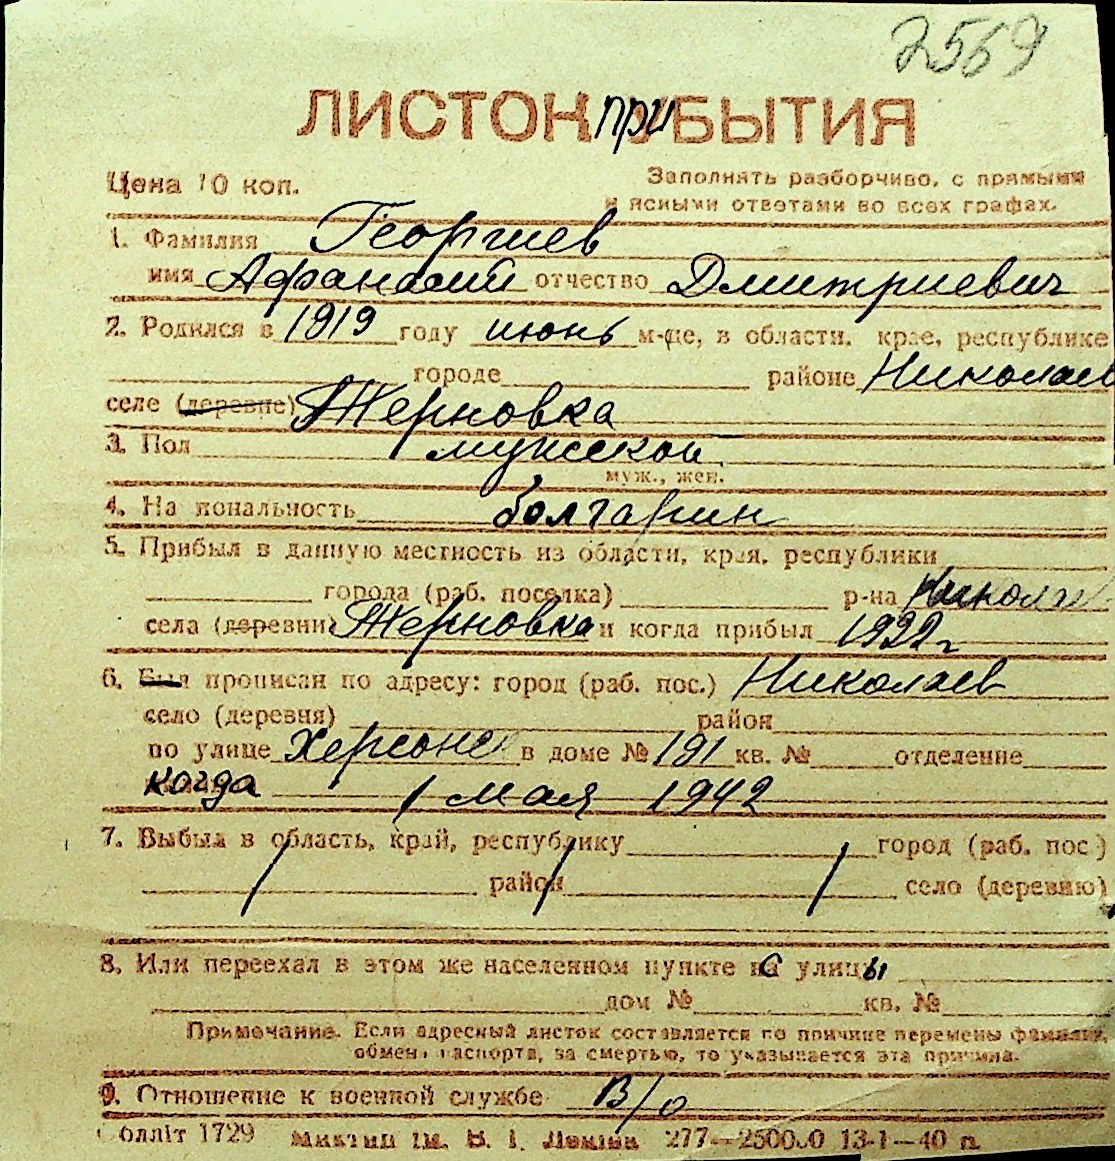 2569
ЛИСТОК при БЫТИЯ
Цена 10 коп.
Заполнять разборчиво, с прямыми
и ясными ответами во всех графах.
1. Фамилия Георгиев
имя Афанасий отчество Дмитриевич
2. Родился в 1919 году июнь м-це, в области, крае, республике
городе районе Николаев
селе (деревне) Терновка
3. Пол мужской
муж., жен.
4. Национальность болгарин
5. Прибыл в данную местность из области, края, республики
города (раб. поселка) р-на Николаев
села (деревни) Терновка и когда прибыл
6. Был прописан по адресу: город (раб. пос.) Николаев
село (деревня) район
по улице Херсонск в доме № 191 кв. № отделение
когда 1 мая 1942
7. Выбыл в область, край, республику город (раб. пос.)
район село (деревню)
8. Или переехал в этом же населенном пункте с улицы
дом № кв. №
Примечание. Если адресный листок составляется по причине перемены фамилии,
обмена паспорта, за смертью, то указывается эта причина.
9. Отношение к военной службе В/о
Облліт 1729 ім. В. І. Леніна 277—25000 13-1—40 п.